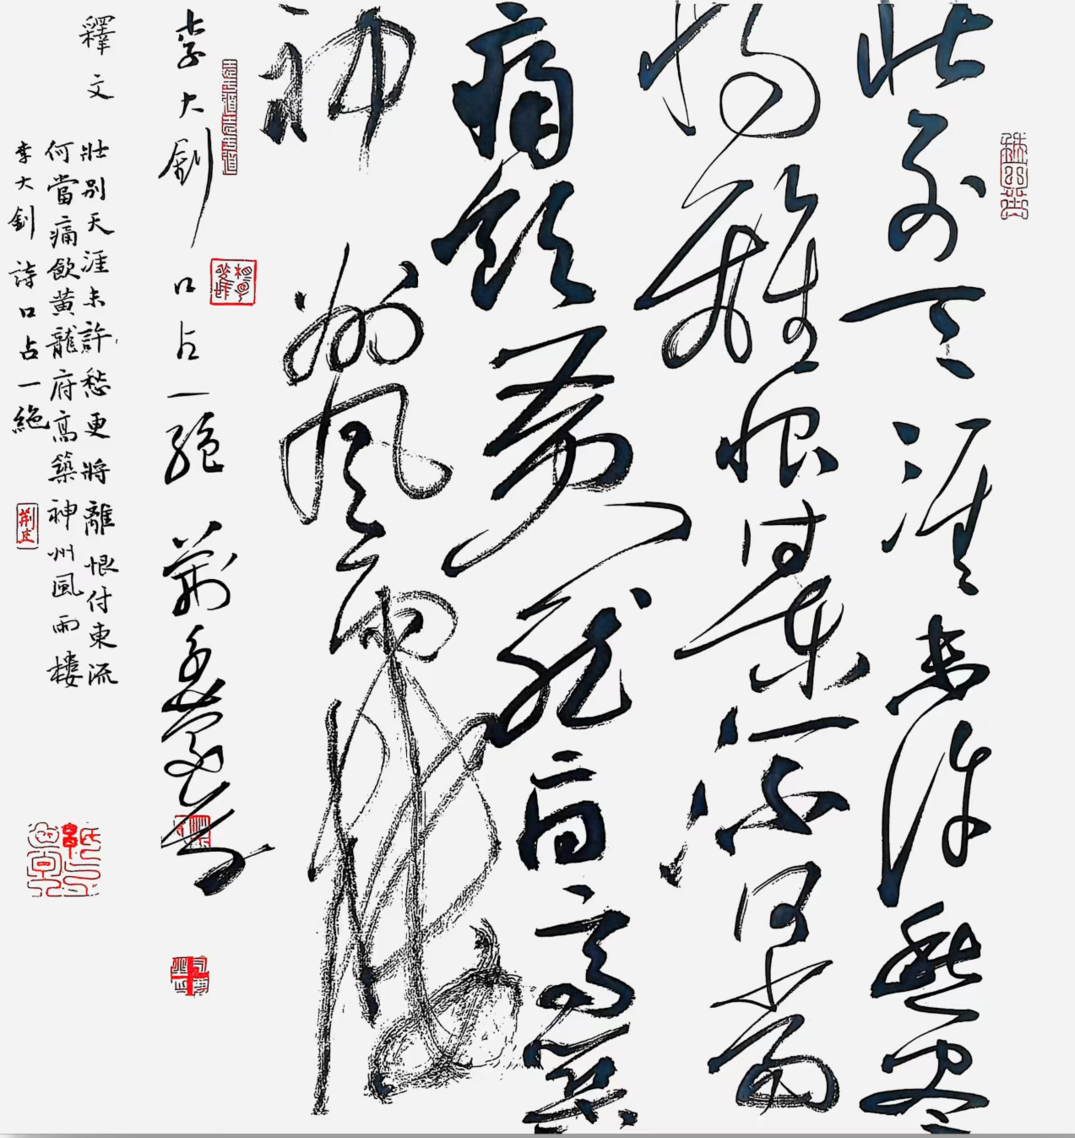 壯別天涯未許愁尽
將離恨付東流何當
痛飲黃龍府高築
神州風雨樓
李大釗口占一絕
釋文
壯別天涯未許愁更將離恨付東流
何當痛飲黃龍府高築神州風雨樓
李大釗詩口占一絕